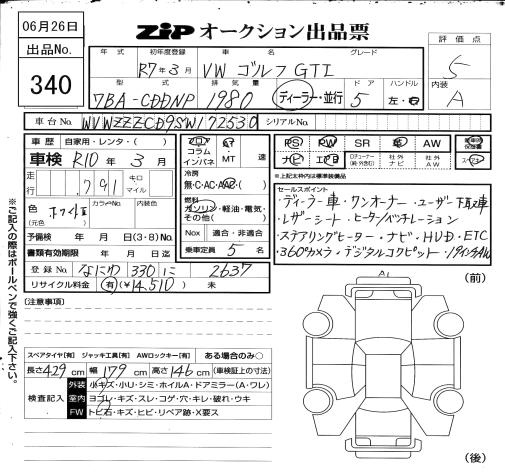 06月26日
ZIP オークション出品票
出品No.
340
年式 初年度登録 車名 グレード
R7年3月 VW ゴルフGTI
型式 排気量 ドア ハンドル
7BA-CDDNP 1980 ディーラー・並行 5 左・右
評価点
5
内装
A
車台No. WVWZZZCD9SW172530 シリアルNo.
車歴 自家用・レンタ・( )
車検 R10年3月
走行 791 キロ マイル
色 ホワイトⅡ カラーNo. 内装色
(元色)
予備検 年 月 日(3・8)No.
書類有効期限 年 月 日
登録No. なにわ 330 に 2637
リサイクル料金 有(¥14,510) 未
フロア コラム インパネ AT MT 速
冷房
無・C・AC・AAC( )
燃料
ガソリン・軽油・電気・
その他( )
Nox 適合・非適合
乗車定員 5 名
PS PW SR 革 AW
ナビ エアB Dチューナー(純・外含む) 社外ナビ 社外AW
新車時保証書
スペアキー
※上記太枠内は標準装備品
セールスポイント
・ディーラー車・ワンオーナー・ユーザー下取車
・レザーシート・ヒーター/ベンチレーション
・ステアリングヒーター・ナビ・HUD・ETC
・360°カメラ・デジタルコクピット・19インチAW
※ご記入の際はボールペンで強くご記入下さい。
(注意事項)
A1
(前)
スペアタイヤ[有] ジャッキ工具[有] AWロックキー[有] ある場合のみ○
長さ429cm 幅179cm 高さ146cm (車検証上の寸法)
検査記入
外装 小キズ・小U・シミ・ホイルA・ドアミラー(A・ワレ)
室内 ヨゴレ・キズ・スレ・コゲ・穴・キレ・破れ・ウキ
FW トビ石・キズ・ヒビ・リペア跡・X要ス
(後)